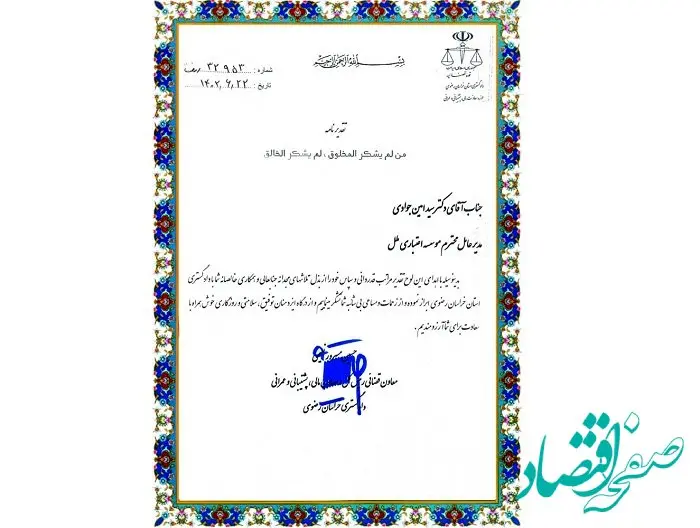 بسم الله الرحمن الرحیم
شماره: ۳۲۹۵۳
تاریخ: ۱۴۰۲/۶/۲۲
تقدیر نامه
من لم یشکر المخلوق ، لم یشکر الخالق
جناب آقای دکتر سید امین جوادی
مدیرعامل محترم موسسه اعتباری ملل
بدینوسیله با اهدای این لوح تقدیر مراتب قدردانی و سپاس خود را از بذل تلاشهای مجدانه جنابعالی و همکاری خالصانه شما با دادگستری
استان خراسان رضوی ابراز نموده و از زحمات و مساعی بی شائبه شما تشکر مینماییم و از درگاه ایزد منان توفیق، سلامتی و روزگاری خوش همراه با
سعادت برای شما آرزومندیم.
معاون قضائی مالی، پشتیبانی و عمرانی
دادگستری خراسان رضوی
صفحه اقتصاد